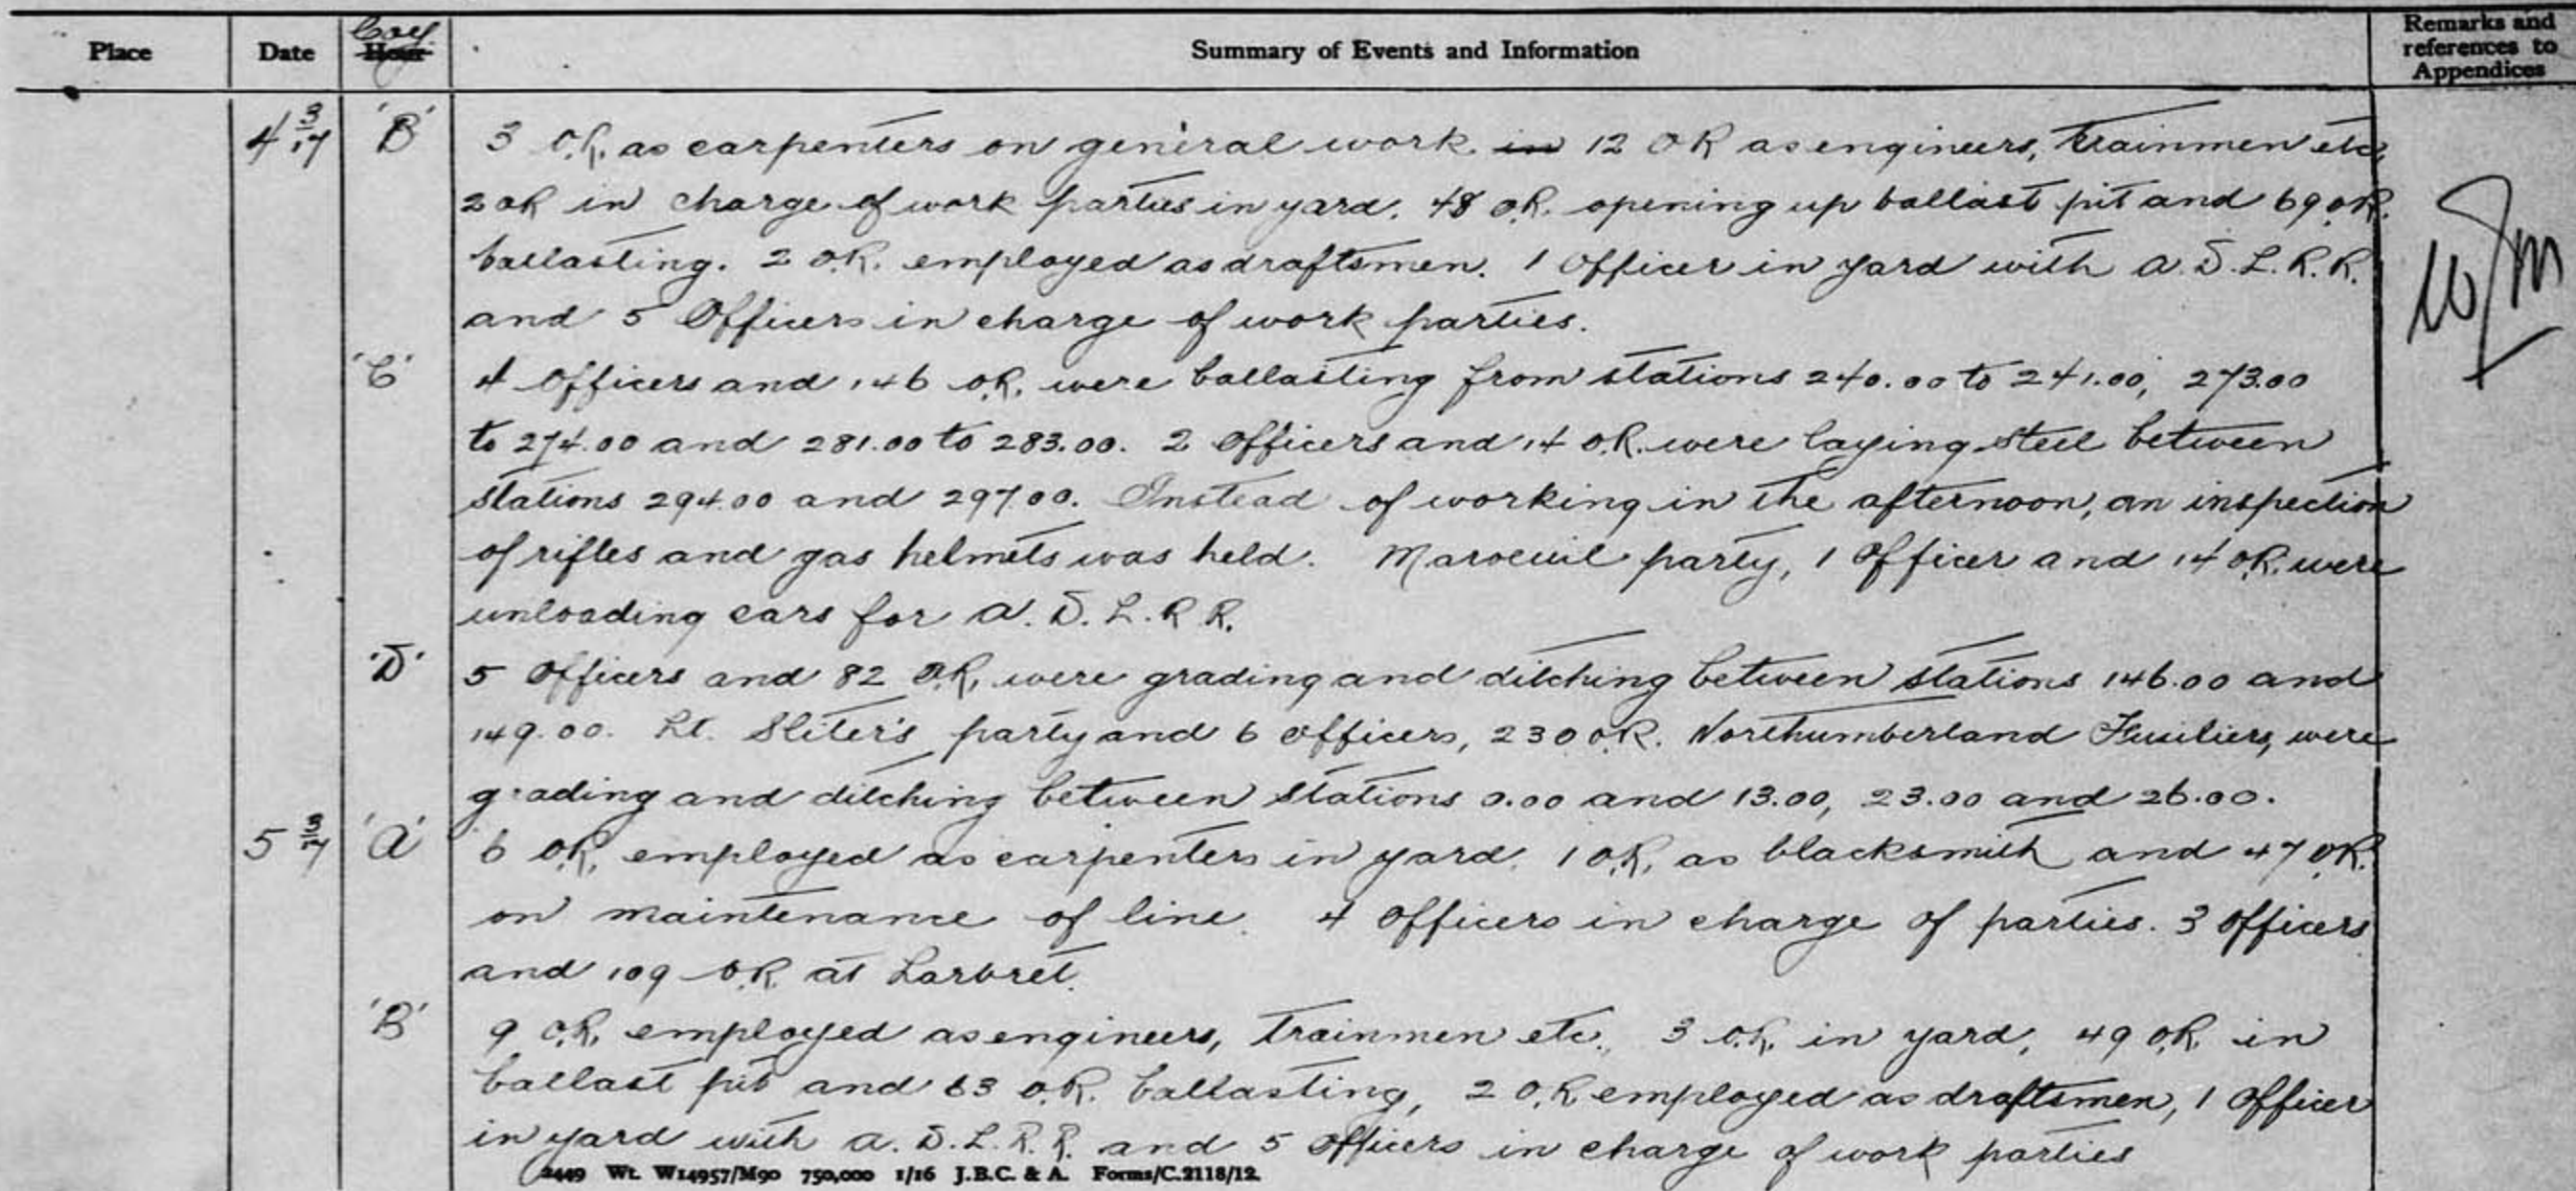 Place Date Coy Hour Summary of Events and Information Remarks and references to Appendices
4 3/17 'B' 3 O.R. as carpenters on general work in 12 OR as engineers, trainmen etc,
2 OR in charge of work parties in yard. 48 O.R. opening up ballast pit and 69 O.R.
ballasting. 2 O.R. employed as draftsmen. 1 Officer in yard with A.D.L.R.R.
and 5 Officers in charge of work parties.
'C' 4 Officers and 146 O.R. were ballasting from stations 240.00 to 241.00, 273.00
to 274.00 and 281.00 to 283.00. 2 Officers and 14 O.R. were laying steel between
stations 294.00 and 297.00. Instead of working in the afternoon, an inspection
of rifles and gas helmets was held. Maroeuil party, 1 Officer and 14 O.R. were
unloading cars for A.D.L.R R.
'D' 5 Officers and 82 O.R. were grading and ditching between stations 146.00 and
149.00. Lt. Sliter's party and 6 Officers, 230 O.R. Northumberland Fusiliers, were
grading and ditching between stations 0.00 and 13.00, 23.00 and 26.00.
5 3/17 'A' 6 O.R. employed as carpenters in yard. 1 O.R. as blacksmith and 47 O.R.
on maintenance of line. 4 Officers in charge of parties. 3 Officers
and 109 O.R. at Larbret.
'B' 9 O.R. employed as engineers, trainmen etc., 3 O.R. in yard, 49 O.R. in
ballast pit and 63 O.R. ballasting, 2 O.R employed as draftsmen, 1 Officer
in yard with A.D.L.R.R. and 5 Officers in charge of work parties
2449 Wt. W14957/M90 750,000 1/16 J.B.C. & A. Forms/C.2118/12.